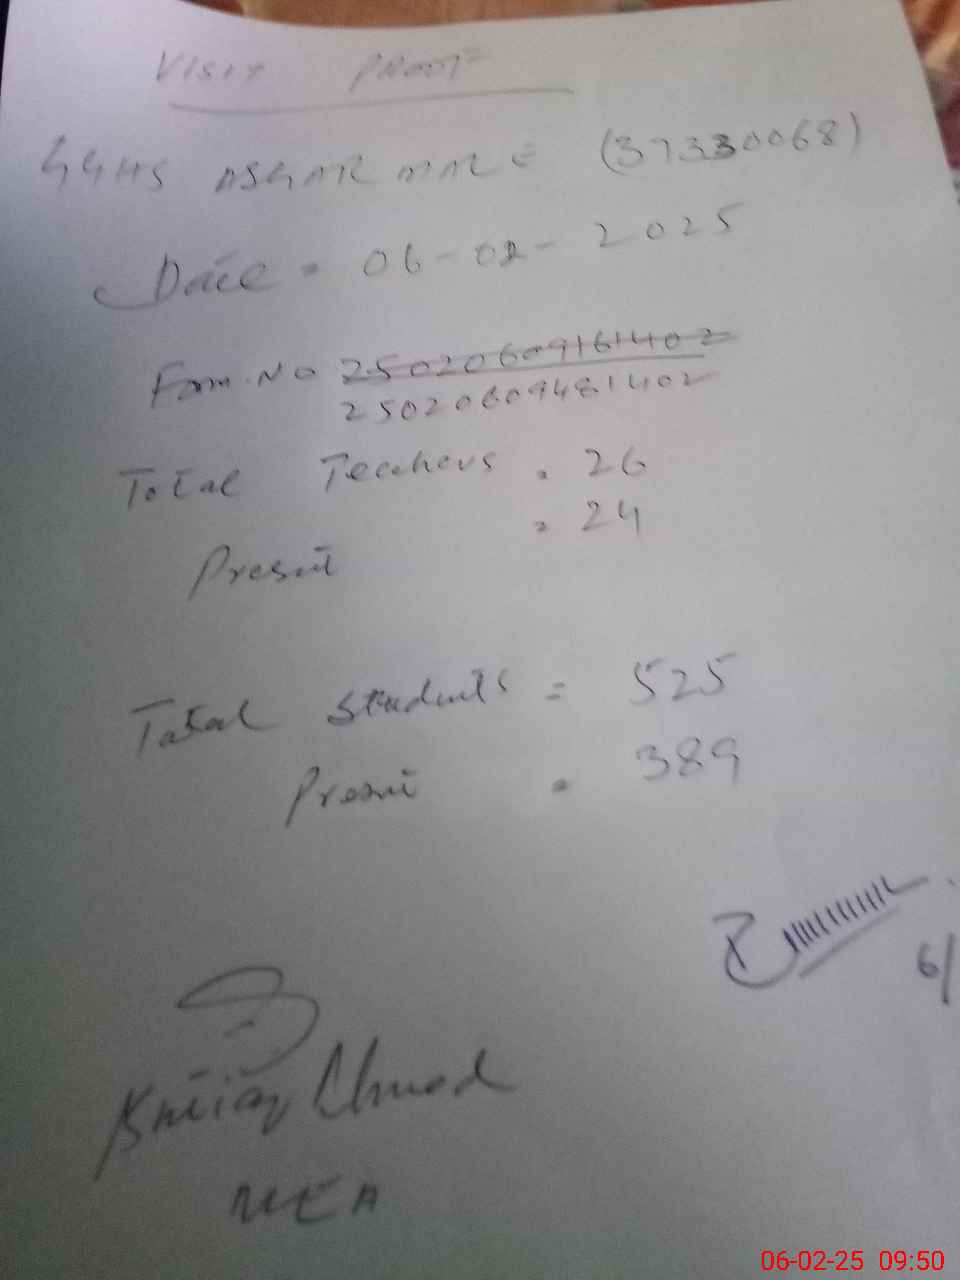 VISIT PROOF
GGHS ASGHAR MALL (37330068)
Date = 06-02-2025
Form.No 25020609161402
25020609481402
Total Teachers = 26
= 24
Present
Total Students = 525
Present = 389
6/
Ahmad
MEA
06-02-25 09:50